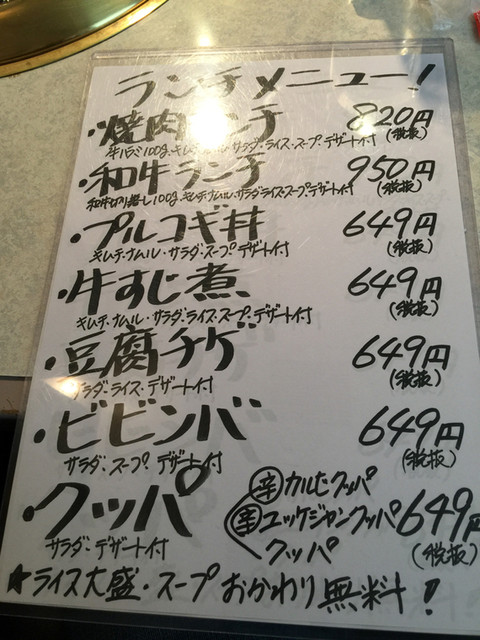 ランチメニュー!
・焼肉ランチ 820円
牛ハラミ100g、キムチ、ナムル・サラダ・ライス・スープ、デザート付 (税抜)
・和牛ランチ 950円
和牛切り落とし100g、キムチ・ナムル・サラダ・ライス・スープ・デザート付 (税抜)
・プルコギ丼 649円
キムチ・ナムル・サラダ・スープ・デザート付 (税抜)
・牛すじ煮 649円
キムチ・ナムル・サラダ・ライス・スープ・デザート付 (税抜)
・豆腐チゲ 649円
サラダ・ライス・デザート付 (税抜)
・ビビンバ 649円
サラダ・スープ・デザート付 (税抜)
・クッパ
サラダ・デザート付
辛 カルビクッパ
辛 ユッケジャンクッパ 649円
クッパ (税抜)
★ライス大盛・スープおかわり無料!